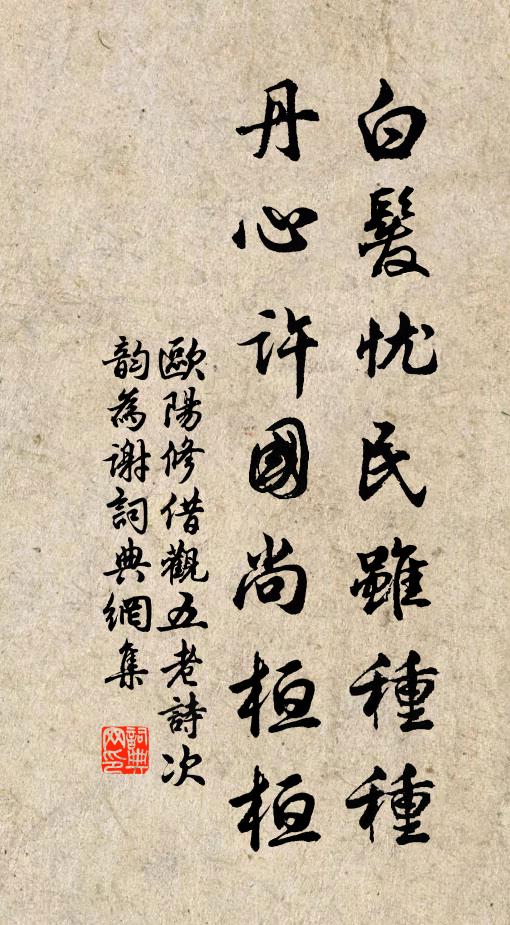 白髮忧民雖種種
丹心許國尚桓桓
歐陽修借觀五老詩次
韵為谢詞典網集
詞典网印